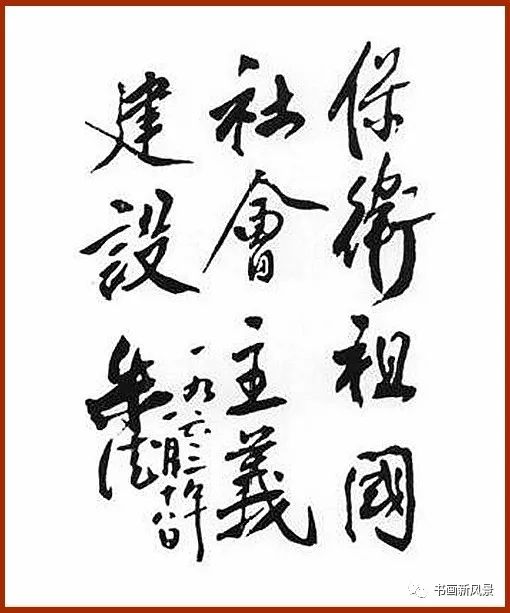 保衛祖國
社會主義
建設
一九六二年
一月十八日
朱德
书画新风景